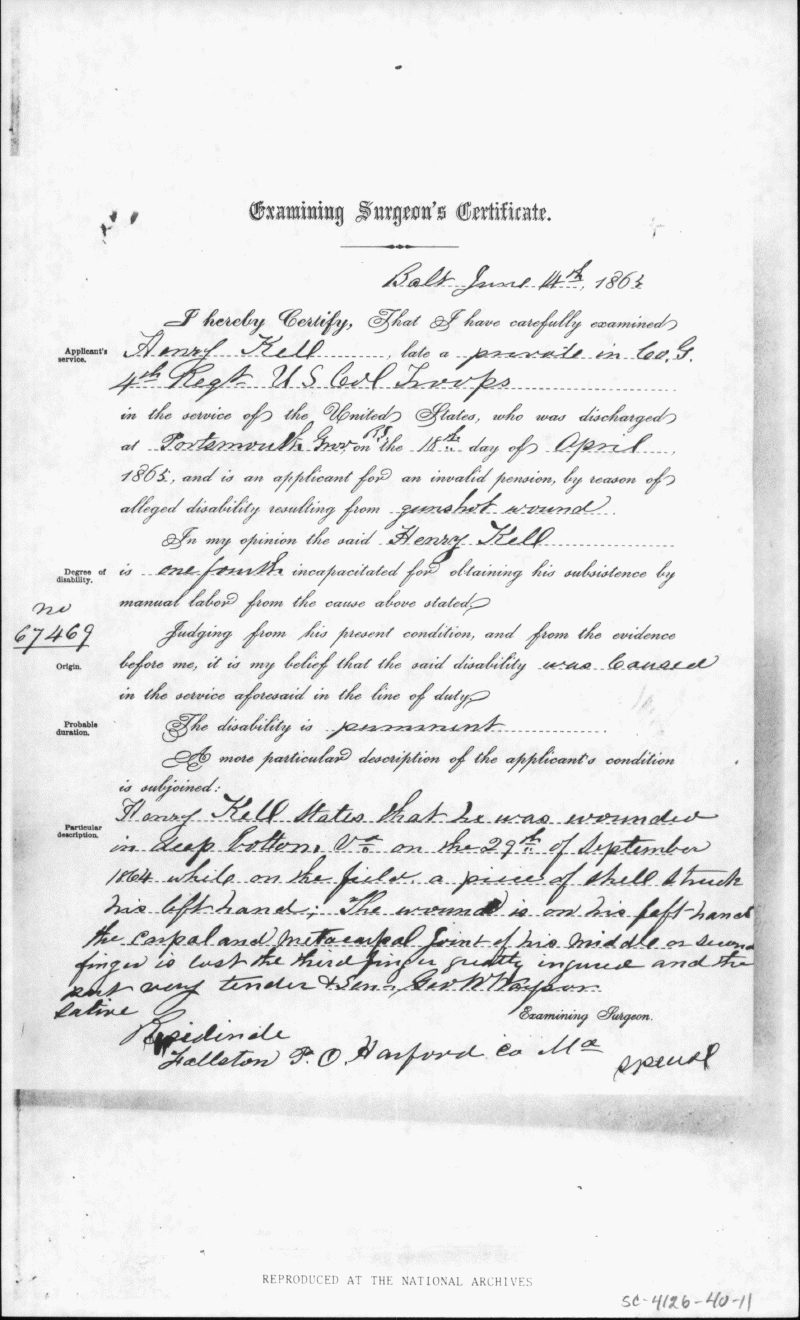 Examining Surgeon's Certificate.
Balt June 14th, 1865
I hereby Certify, That I have carefully examined
Applicant's service.
Henry Kell, late a private in Co. G.
4th Regt U S Col Troops
in the service of the United States, who was discharged
at Portsmouth Grov R.I. on the 18th day of April,
1865, and is an applicant for an invalid pension, by reason of
alleged disability resulting from gunshot wound
In my opinion the said Henry Kell
Degree of disability.
is one fourth incapacitated for obtaining his subsistence by
manual labor from the cause above stated.
no
67469
Judging from his present condition, and from the evidence
Origin.
before me, it is my belief that the said disability was Caused
in the service aforesaid in the line of duty
Probable duration.
The disability is permanent
A more particular description of the applicant's condition
is subjoined:
Particular description.
Henry Kell states that he was wounded
in deep bottom, Va on the 29th of September
1864 while on the field. a piece of shell struck
his left hand; The wound is on his left hand
the carpal and metacarpal joint of his middle or second
finger is lost the third finger greatly injured and the
part very tender & sen Geo W
sative
Examining Surgeon.
Residinde
Fallston P. O. Harford Co Md
REPRODUCED AT THE NATIONAL ARCHIVES
SC-4126-40-11